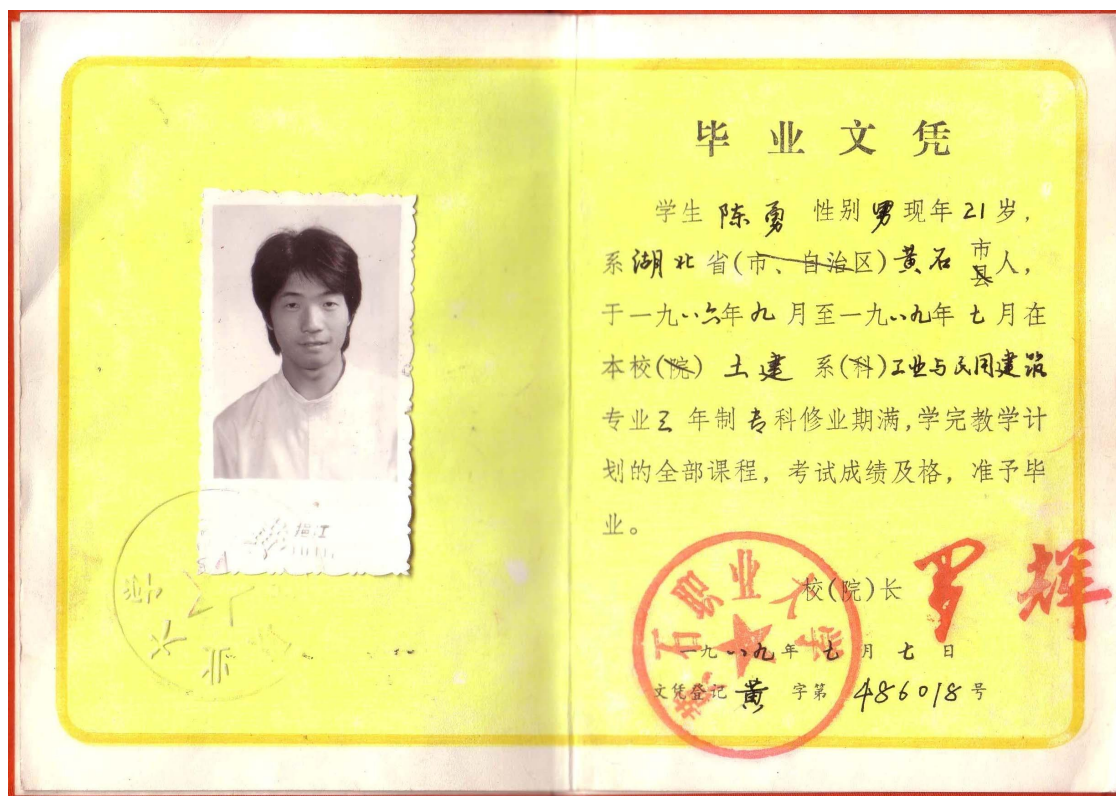 毕业文凭
学生 陈勇 性别 男 现年 21 岁,
系 湖北 省(市、自治区) 黄石 市县人,
于一九八六年九月至一九八九年七月在
本校(院) 土建 系(科) 工业与民用建筑
专业 三 年制 专 科修业期满,学完教学计
划的全部课程,考试成绩及格,准予毕
业。
校(院)长 罗辉
黄石职业大学
一九八九年七月七日
文凭登记 黄 字第 486018 号